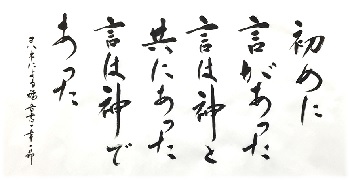 初めに
言があった
言は神と
共にあった
言は神で
あった
ヨハネによる福音書一章一節